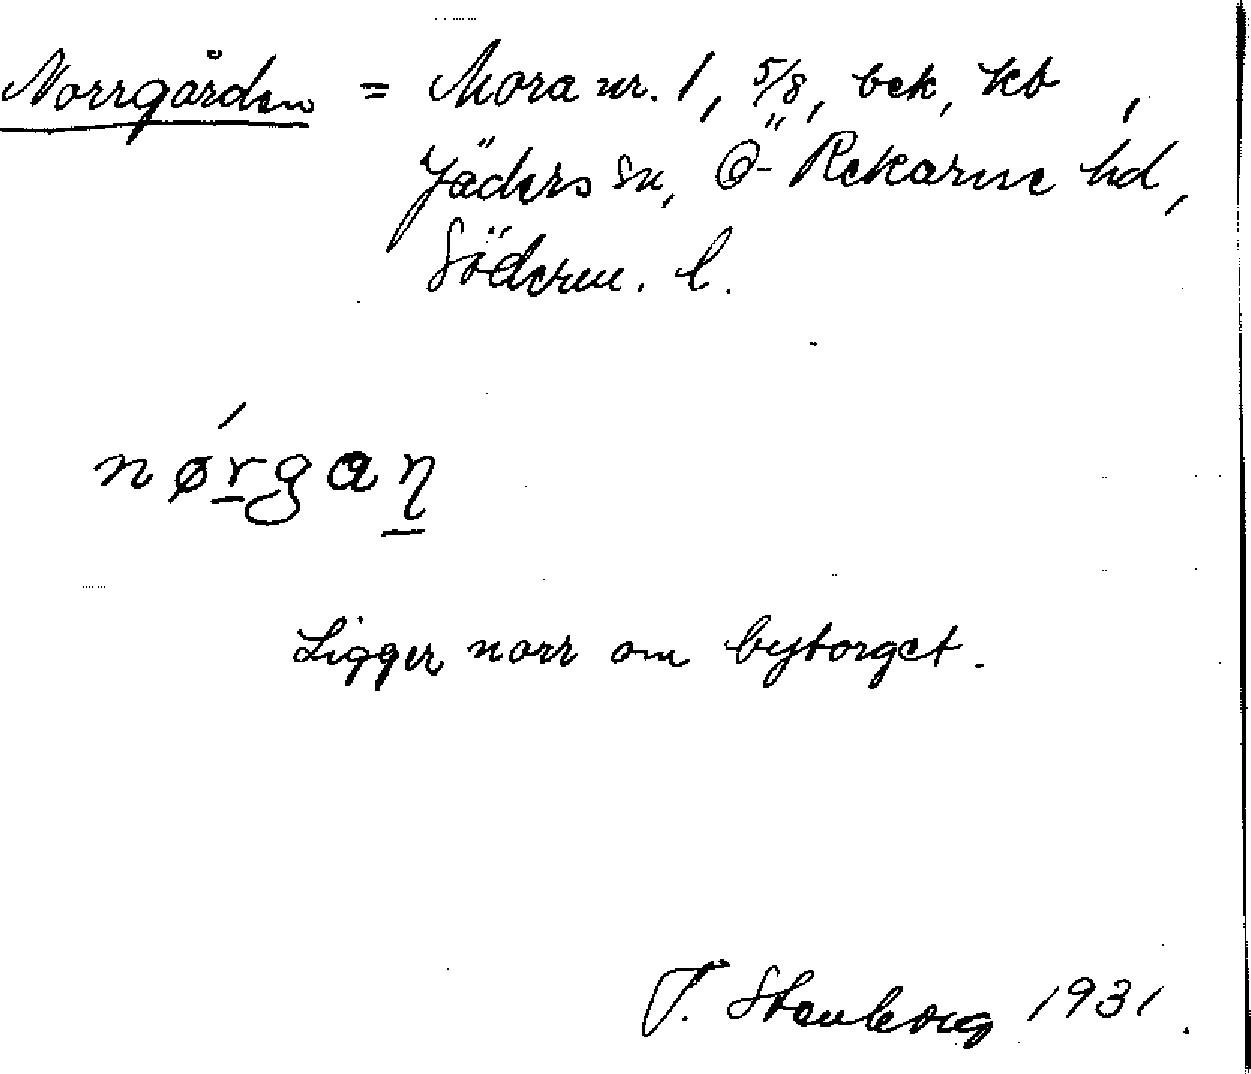 Norrgården = Mora nr. 1, 5/8, bek, kb,
Jäders sn, Ö- Rekarne hd,
Söderm. l.
nørgaṉ
Ligger norr om bytorget.
J. Stenborg 1931.